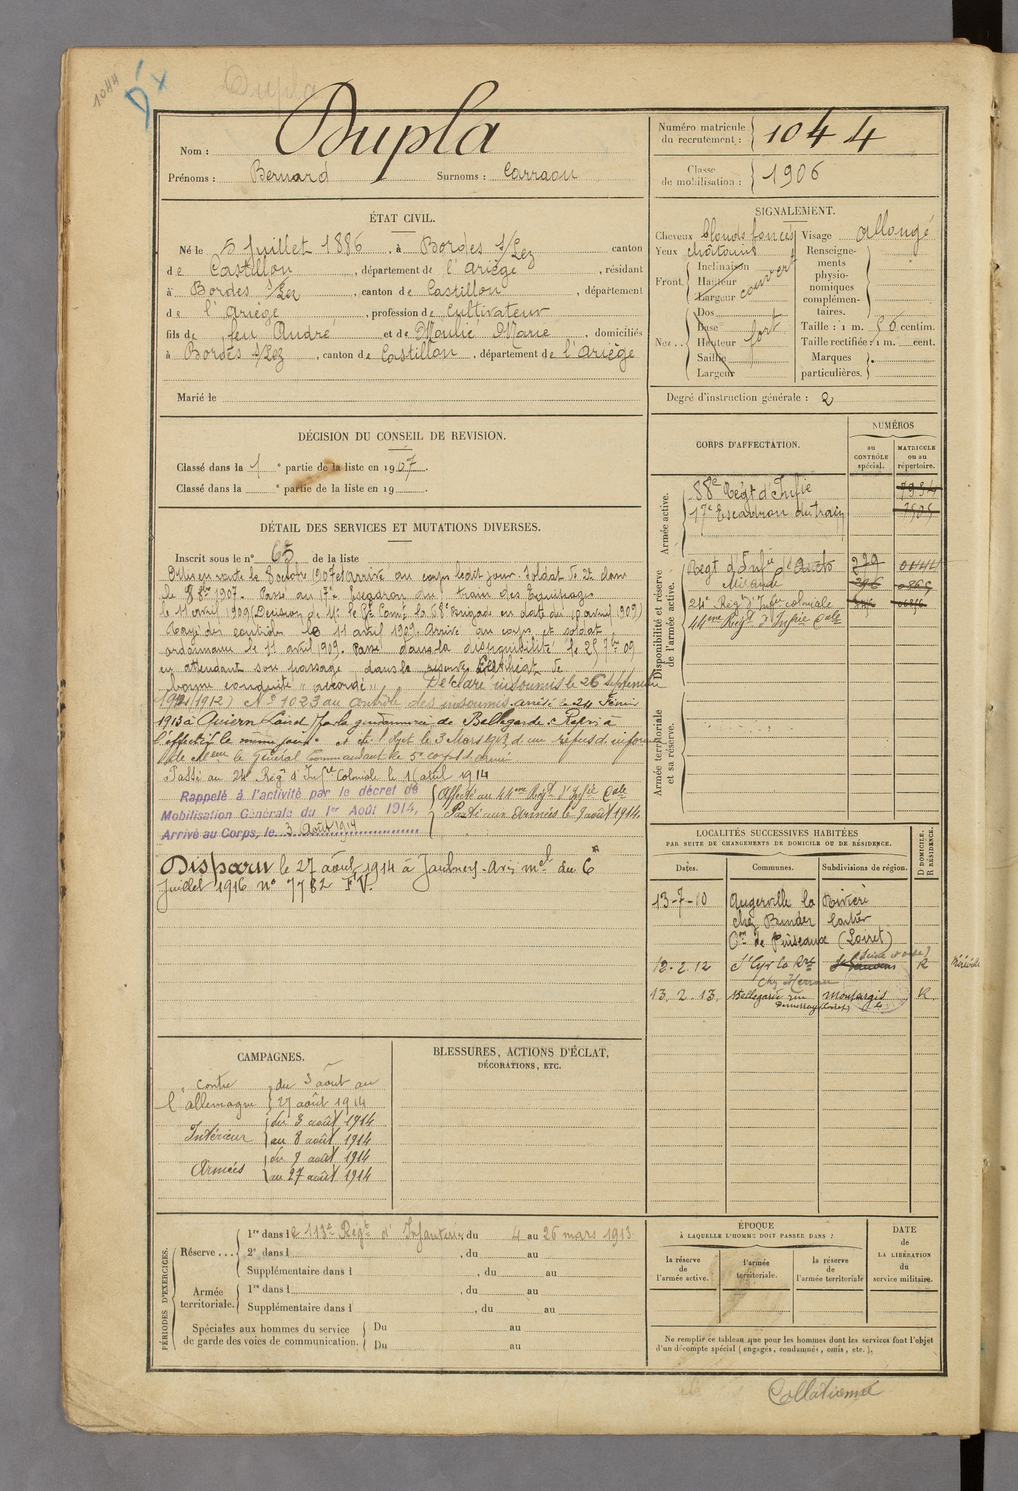 1044
D x
Dupla
Nom : Dupla
Prénoms : Bernard Surnoms : Carraou
Numéro matricule du recrutement : 1044
Classe de mobilisation : 1906
ÉTAT CIVIL.
Né le 5 Juillet 1886, à Bordes s/Lez canton
de Castillon, département de l'Ariège, résidant
à Bordes s/Lez, canton de Castillon, département
de l'Ariège, profession de Cultivateur
fils de feu André et de Maulié Marie, domiciliés
à Bordes s/Lez, canton de Castillon, département de l'Ariège
Marié le
SIGNALEMENT.
Cheveux blonds foncés Visage allongé
Yeux châtains
Front. Inclinaison Hauteur Largeur couvert
Nez.. Dos Base Hauteur Saillie Largeur fort
Renseignements physionomiques complémentaires.
Taille : 1 m. 56 centim.
Taille rectifiée : 1 m. cent.
Marques particulières.
Degré d'instruction générale : 2
DÉCISION DU CONSEIL DE REVISION.
Classé dans la 1 e partie de la liste en 1907.
Classé dans la e partie de la liste en 19 .
DÉTAIL DES SERVICES ET MUTATIONS DIVERSES.
Inscrit sous le n° 65 de la liste
le 8 8bre 1907. Passé au 17e Escadron du train des Equipages
le 11 avril 1909 (Décision de Mr le Gl Comt la 68e brigade en date du 10 avril 1909)
Rayé des contrôles le 11 avril 1909. Arrivé au corps et soldat
ordonnance le 11 avril 1909. Passé dans la disponibilité le 25 7bre 09
en attendant son passage dans la réserve. Certificat de
bonne conduite " accordé " Déclaré insoumis le 26 septembre
N° 1023 au contrôle des insoumis. arrêté le 24 Février
1913 à par la gendarmerie de Bellegarde. Repris à
l'effectif le même jour. a été l'objet le 3 Mars 1913 d'un refus d'informer
de Mr le Général Commandant le 5e corps d'armée
Passé au 24 Régt d'Infie Coloniale le 16 avril 1914
Rappelé à l'activité par le décret de
Mobilisation Générale du 1er Août 1914,
Arrivé au Corps, le 3 Août 1914
Affecté au 44me Régt d'Infie Cale
Parti aux Armées le 9 août 1914.
Disparu le 27 août 1914 à Jaulnery. Avis mel du 6
Juillet 1916 n° 7782 F.V.
CORPS D'AFFECTATION.
NUMÉROS
au CONTRÔLE spécial.
MATRICULE ou au répertoire.
Armée active.
88e Régt d'Infie 7934
17e Escadron du train 7505
Disponibilité et réserve de l'armée active.
Regt d'Infie d'Auch 0444
Mirande 296
24e Régt d'Infie coloniale
44me Régt d'Infie Cale
Armée territoriale et sa réserve.
LOCALITÉS SUCCESSIVES HABITÉES
PAR SUITE DE CHANGEMENTS DE DOMICILE OU DE RÉSIDENCE.
Dates. Communes. Subdivisions de région. D DOMICILE. R RÉSIDENCE.
13-7-10 Augerville la Rivière
chez Binder
Con de Puiseaux (Loiret)
12.2.12 St Cyr la R (Seine et Oise) R
13.2.13. Bellegarde Montargis R.
(Loiret)
CAMPAGNES.
contre l'allemagne du 3 août au 27 août 1914
Intérieur du 3 août 1914 au 8 août 1914
Armées du 9 août 1914 au 27 août 1914
BLESSURES, ACTIONS D'ÉCLAT,
DÉCORATIONS, ETC.
PÉRIODES D'EXERCICES.
Réserve... 1re dans le 113e Régt d'Infanterie, du 4 au 26 mars 1913
2e dans l , du au
Supplémentaire dans l , du au
Armée territoriale. 1re dans l , du au
Supplémentaire dans l , du au
Spéciales aux hommes du service de garde des voies de communication. Du au
Du au
ÉPOQUE
À LAQUELLE L'HOMME DOIT PASSER DANS :
la réserve de l'armée active.
l'armée territoriale.
la réserve de l'armée territoriale
DATE de LA LIBÉRATION du service militaire.
Ne remplir ce tableau que pour les hommes dont les services font l'objet
d'un décompte spécial (engagés, condamnés, omis, etc.).
Collationné